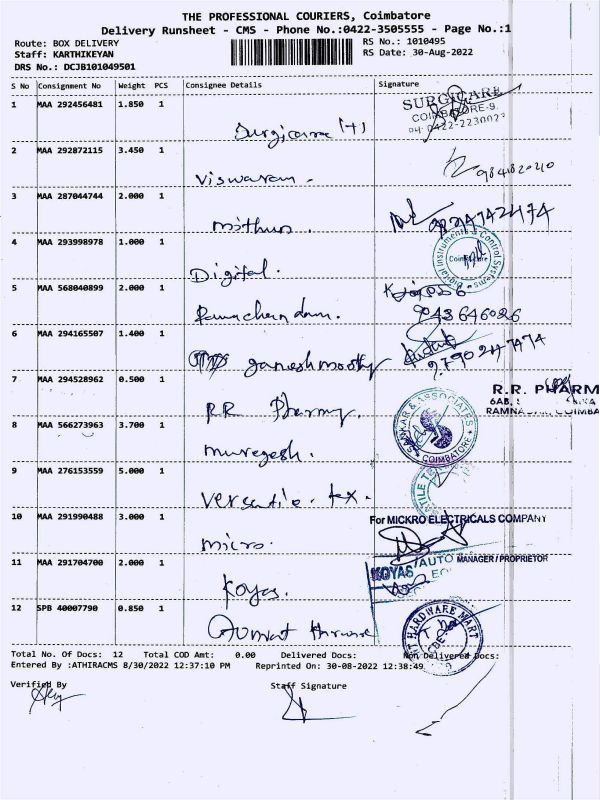 THE PROFESSIONAL COURIERS, Coimbatore
Delivery Runsheet - CMS - Phone No.:0422-3505555 - Page No.:1
Route: BOX DELIVERY RS No.: 1010495
Staff: KARTHIKEYAN RS Date: 30-Aug-2022
DRS No.: DCJB101049501
S No Consignment No Weight PCS Consignee Details Signature
1 MAA 292456481 1.850 1
SURGICARE
COIMBATORE-9.
Surgicare
2 MAA 292872115 3.450 1
Viswaram.
3 MAA 287044744 2.000 1
Mithun.
4 MAA 293998978 1.000 1
Digital Instruments & Control Systems
Coimbatore
Digital.
5 MAA 568040899 2.000 1
Ramachandam. 9043646026
6 MAA 294165507 1.400 1
ganeshmoorthy
7 MAA 294528962 0.500 1
R.R. PHARM
6AB,
RAMNA COIMBA
R.R Pharmy.
8 MAA 566273963 3.700 1
SANKAR & ASSOCIATES
COIMBATORE
Muregesh.
9 MAA 276153559 5.000 1
Versatile. tex.
10 MAA 291990488 3.000 1
For MICKRO ELECTRICALS COMPANY
micro.
11 MAA 291704700 2.000 1
MANAGER / PROPRIETOR
KOYAS AUTO
Koyas.
12 SPB 40007790 0.850 1
HARDWARE MART
Total No. Of Docs: 12 Total COD Amt: 0.00 Delivered Docs: Non Delivered Docs:
Entered By :ATHIRACMS 8/30/2022 12:37:10 PM Reprinted On: 30-08-2022 12:38:49
Verified By Staff Signature